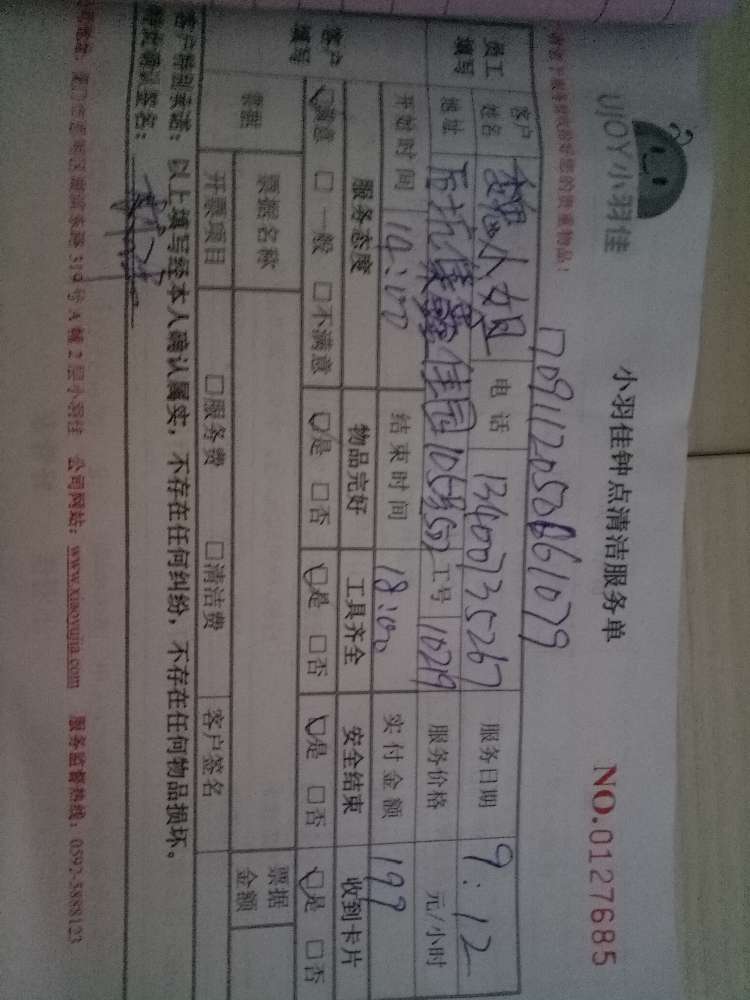 UJOY小羽佳
小羽佳钟点清洁服务单
NO.0127685
的贵重物品!
客户姓名 小姐 电话 13400735267 服务日期 9:12
员工填写 地址 佳园 工号 10219 服务价格 元/小时
开始时间 14:00 结束时间 18:00 实付金额 199
客户填写 服务态度 物品完好 工具齐全 安全结束 收到卡片
☑满意 □一般 □不满意 ☑是 □否 ☑是 □否 ☑是 □否 ☑是 □否
票据 票据名称 票据金额
开票项目 □服务费 □清洁费 客户签名
客户特别承诺:以上填写经本人确认属实,不存在任何纠纷,不存在任何物品损坏。
签名:
319号A幢2层小羽佳 公司网站:www.xiaoyujia.com 服务监督热线:0592-5888123